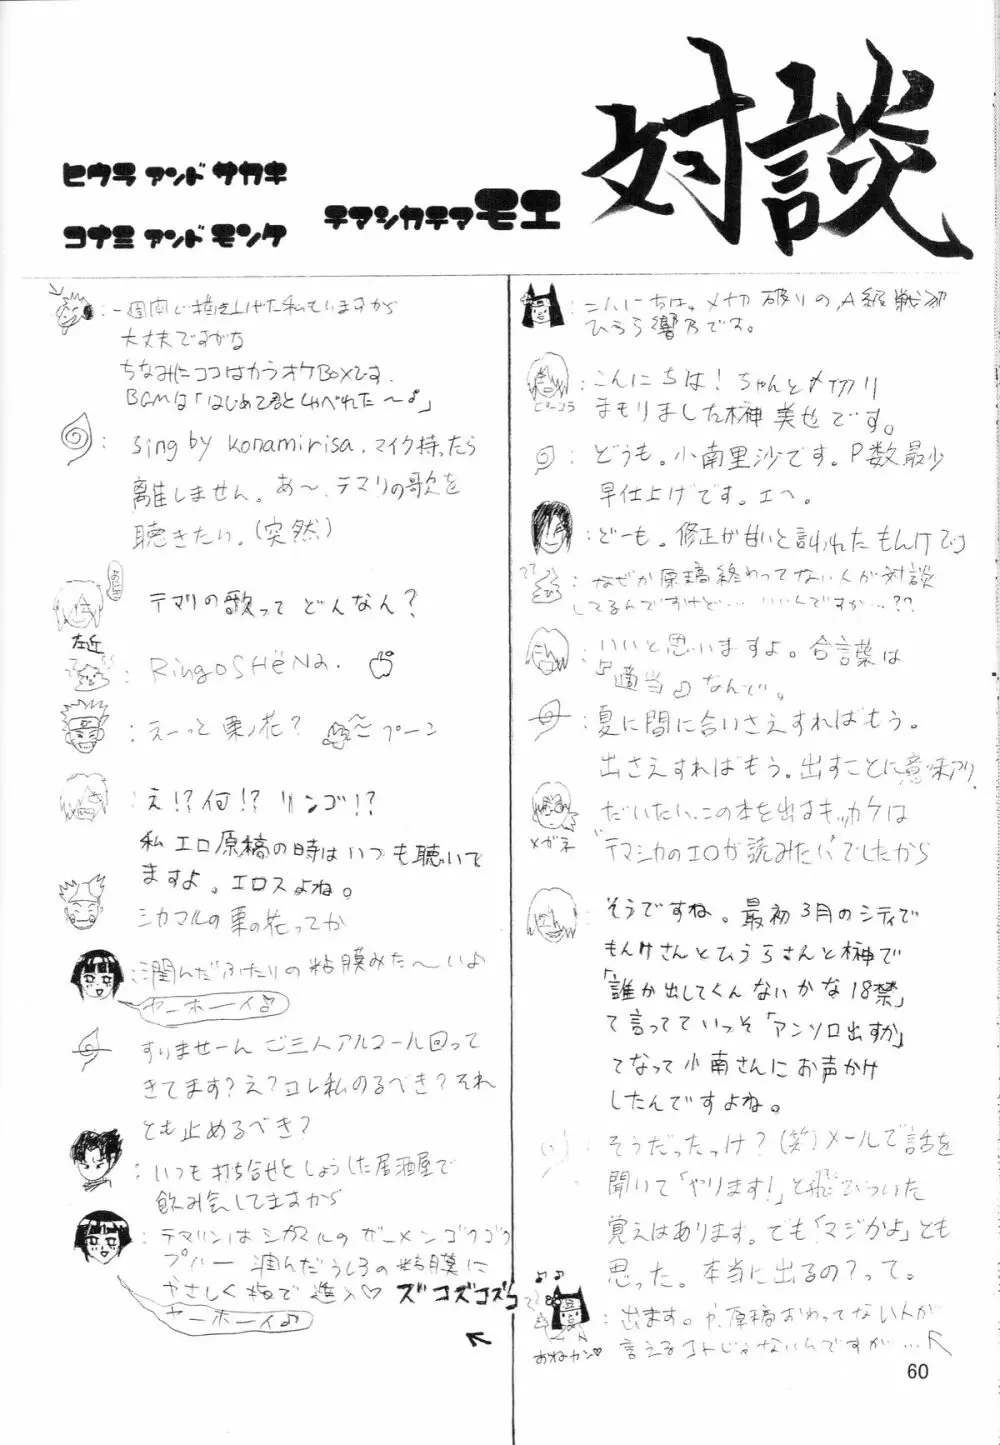 対談
テマシカテマモエ
ヒウラ アンド サカキ
コナミ アンド モンケ
：こんにちは。メ切破りのA級戦犯
ひうら響乃です。
：こんにちは！ちゃんとメ切り
まもりました榊美也です。
ピーコラ
：どうも。小南里沙です。P数最少
早仕上げです。エヘ。
：どーも。修正が甘いと言われたもんけです
：なぜか原稿終わってない人が対談
してるんですけど…いいんですか…??
：いいと思いますよ。合言葉は
『適当♪』なんで。
：夏に間に合いさえすればもう。
出さえすればもう。出すことに意味アリ。
だいたい、この本を出すキッカケは
メガネ
"テマシカのエロが読みたい"でしたから
：そうですね。最初3月のシティで
もんけさんとひうらさんと榊で
「誰か出してくんないかな18禁」
て言ってていっそ「アンソロ出すか」
てなって小南さんにお声かけ
したんですよね。
：そうだったっけ？(笑)メールで話を
聞いて「やります!」と飛びついた
覚えはあります。でも「マジかよ」とも
思った。本当に出るの？って。
：出ます。や、原稿おわってない人が
言えるコトじゃないんですが…
おねカン♡
：一週間で描き上げた私もいますから
大丈夫ですがな
ちなみにココはカラオケBOXです。
BGMは「はじめて君としゃべれた～♪」
：sing by konamirisa. マイク持ったら
離しません。あ～、テマリの歌を
聴きたい。(突然)
：テマリの歌って どんなん？
左近
：RingoSHëNa.
：えーっと栗ノ花？ プーン
：え!?何!? リンゴ!?
私エロ原稿の時はいつも聴いて
ますよ。エロスよね。
：シカマルの栗の花ってか
：潤んだふたりの粘膜みた～いよ
ヤーホーイ♪
：すりませーん ご三人アルコール回って
きてます？え？コレ私のるべき？それ
とも止めるべき？
：いつも打ち合せとしょうした居酒屋で
飲み会してますから
：テマリンはシカマルのザーメンゴクゴク
プハー 潤んだうしろの粘膜に
やさしく指で進入♡ ズコズコズコ
ヤーホーイ♪
60